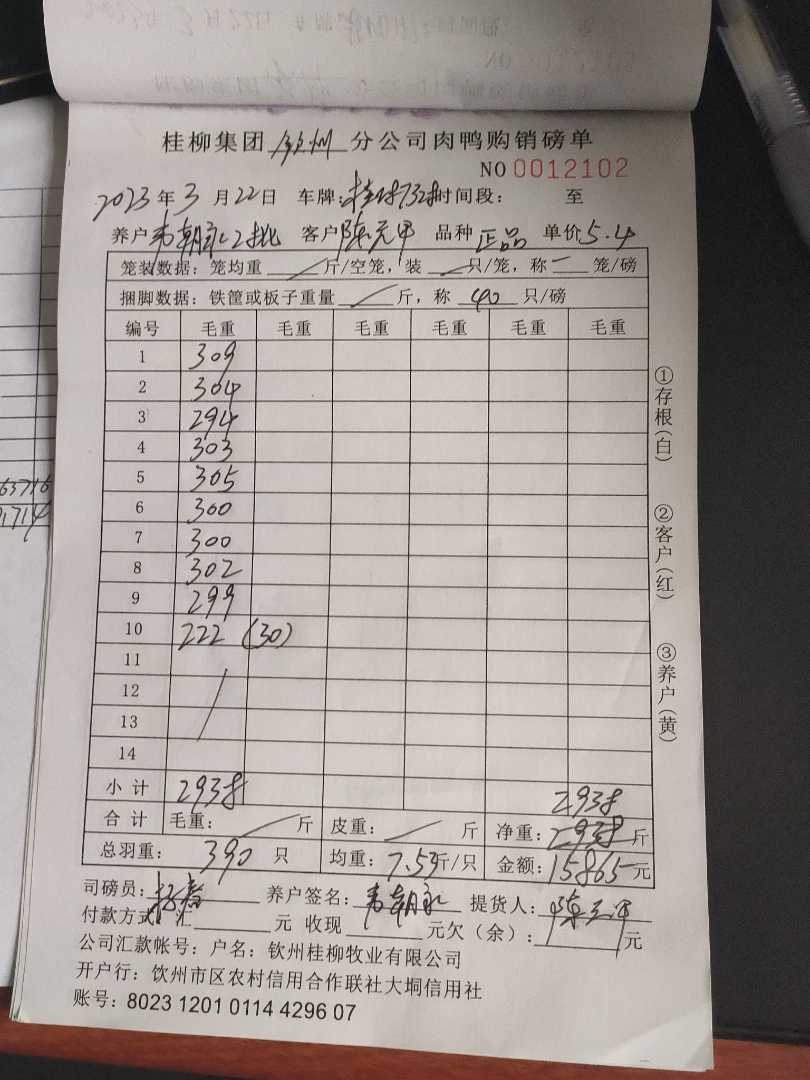 桂柳集团 钦州 分公司肉鸭购销磅单
NO 0012102
2023 年 3 月 22 日 车牌: 时间段: 至
养户 韦朝永2批 客户 陈元甲 品种 正品 单价 5.4
笼装数据:笼均重 / 斤/空笼,装 / 只/笼,称 一 笼/磅
捆脚数据:铁筐或板子重量 / 斤,称 40 只/磅
编号 毛重 毛重 毛重 毛重 毛重 毛重
1 309
2 304
3 294
4 303
5 305
6 300
7 300
8 302
9 299
10 222 (30)
11
12
13
14
小计 2938 2938
合计 毛重: / 斤 皮重: / 斤 净重: 2938 斤
总羽重: 390 只 均重: 7.53 斤/只 金额: 15865 元
司磅员: 养户签名: 韦朝永 提货人: 陈元甲
付款方式: 汇 元 收现 元欠(余): 元
公司汇款帐号:户名:钦州桂柳牧业有限公司
开户行:钦州市区农村信用合作联社大垌信用社
账号:8023 1201 0114 4296 07
①存根(白)
②客户(红)
③养户(黄)
63716
1714